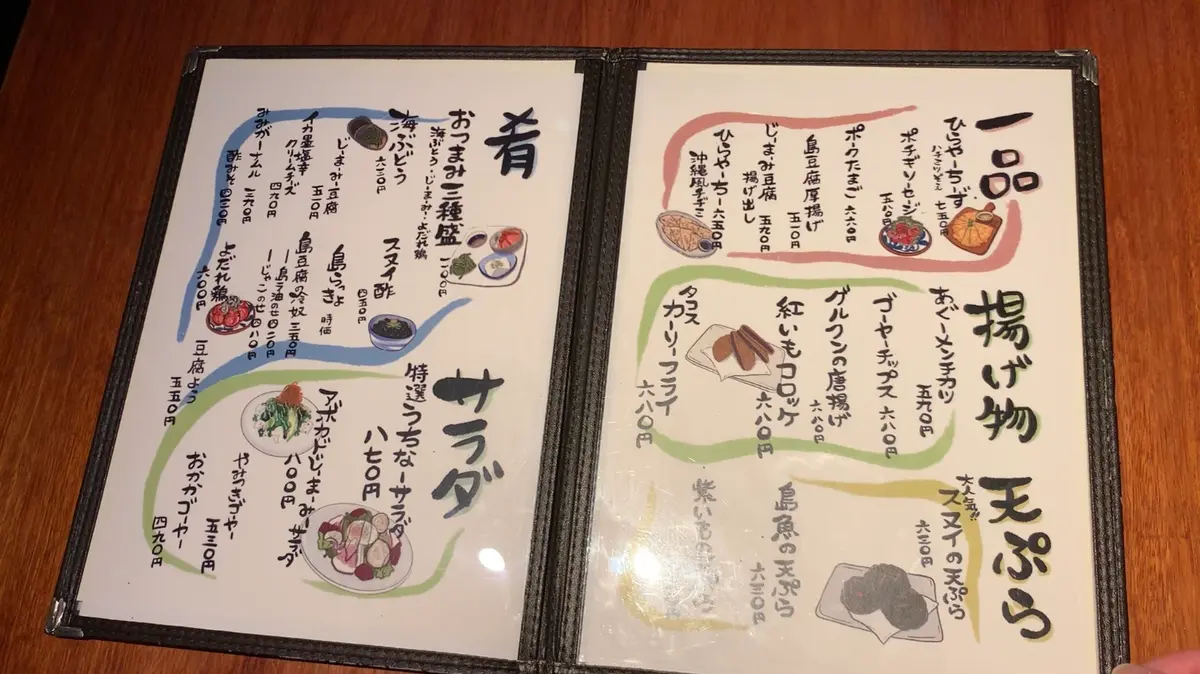 一品
ひらやーちーず
七五〇円
ポチギソーセージ
五八〇円
ポークたまご 六六〇円
島豆腐厚揚げ
五一〇円
じーまーみ豆腐
揚げ出し 五九〇円
ひらやーちー 六五〇円
沖縄風チヂミ
揚げ物
あぐーメンチカツ
五九〇円
ゴーヤーチップス 六八〇円
グルクンの唐揚げ
六八〇円
紅いもコロッケ
六八〇円
タコス
カーリーフライ
六八〇円
天ぷら
大人気!!
スヌイの天ぷら
六三〇円
島魚の天ぷら
六三〇円
紫いもの天ぷら
肴
おつまみ三種盛
海ぶどう・じーまーみ・よだれ鶏
一一〇〇円
海ぶどう
六三〇円
じーまーみ豆腐
五一〇円
イカ墨塩辛
クリームチーズ
四九〇円
みみがーナムル 三九〇円
酢みそ 四三〇円
スヌイ酢
四五〇円
島らっきょ 時価
島豆腐の冷奴 三五〇円
ー島ラ油のせ 四二〇円
ーじゃこのせ 四八〇円
よだれ鶏
六〇〇円
豆腐よう
五五〇円
サラダ
特選うちなーサラダ
八七〇円
アボカドじーまーみーサラダ
八〇〇円
やみつきゴーヤー
五三〇円
おかかゴーヤー
四九〇円